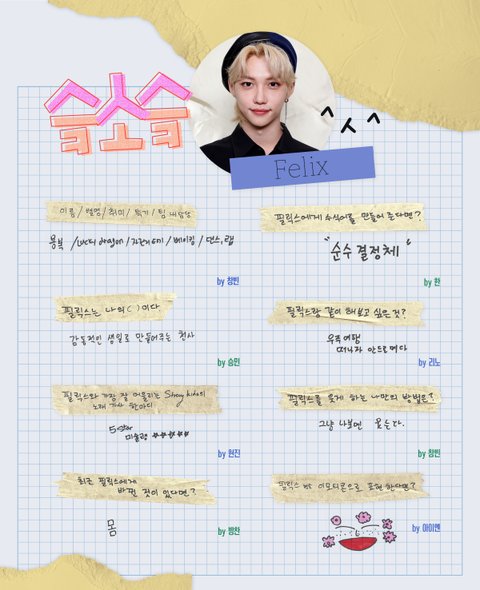 슼소슼
^ㅅ^
Felix
이름/별명/취미/특기/팀 내 담당
필릭스에게 수식어를 만들어 준다면?
용복 / Lucci dragon / 자전거 타기 / 베이킹 / 댄스, 랩
"순수 결정체"
by 창빈
by 한
필릭스는 나의 ( )이다
필릭스랑 같이 해보고 싶은 것?
감동적인 생일로 만들어주는 천사
우주여행
떠나자 안드로메다
by 승민
by 리노
필릭스와 가장 잘 어울리는 Stray kids의
노래 가사 한마디
필릭스를 웃게 하는 나만의 방법은?
5-star
그냥 나보면 웃는다.
by 현진
by 창빈
최근 필릭스에게
바뀐 것이 있다면?
필릭스 를 이모티콘으로 표현 한다면?
몸
by 방찬
by 아이엔